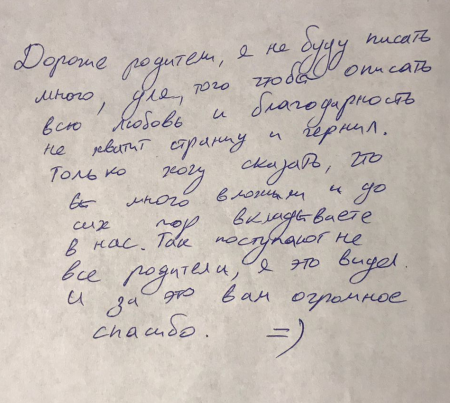 Дороже родители, я не буду писать
много, для, того чтобы описать
всю любовь и благодарность
не хватит страниц и чернил.
Только хочу сказать, что
вы много вложили и до
сих пор вкладываете
в нас. Так поступают не
все родители, я это видел.
И за это вам огромное
спасибо. =)